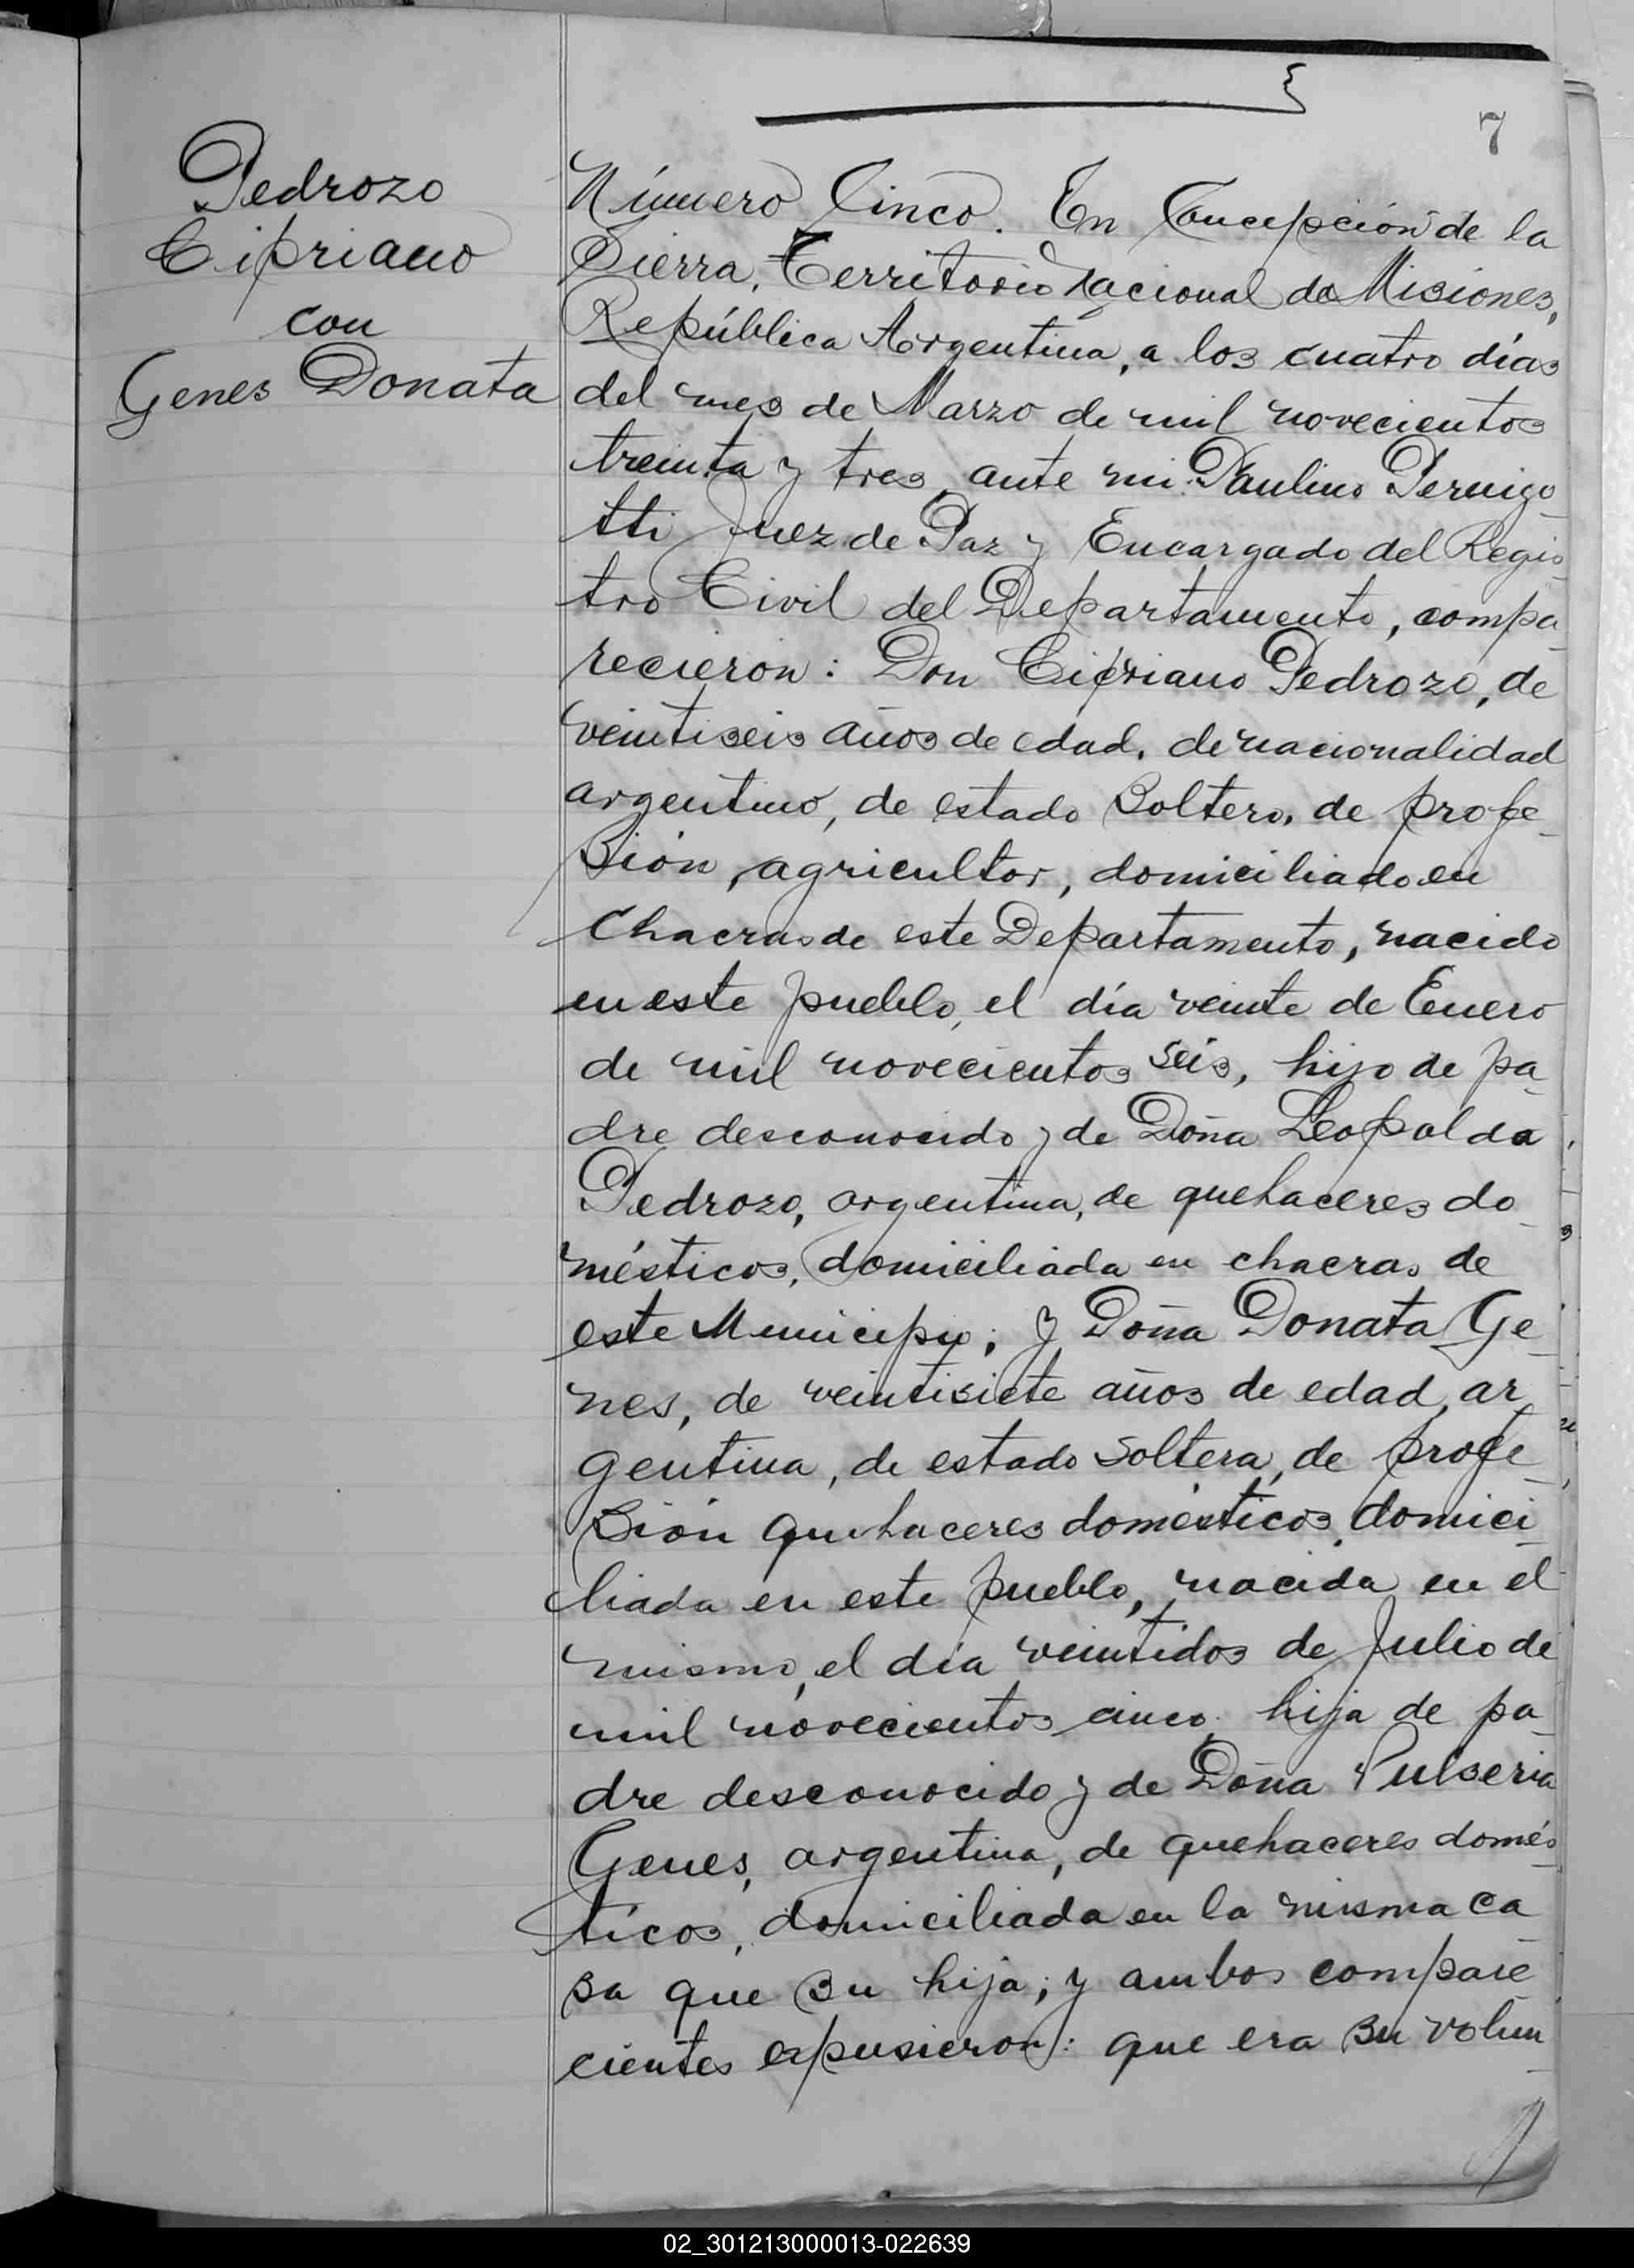 7
Pedrozo
Cipriano
con
Genes Donata
Número Cinco. En Concepción de la
Sierra, Territorio Nacional de Misiones,
República Argentina, a los cuatro días
del mes de Marzo de mil novecientos
treinta y tres, ante mi: Paulino Pernigo-
tti Juez de Paz y Encargado del Regis-
tro Civil del Departamento, compa-
recieron: Don Cipriano Pedrozo, de
veintiseis años de edad, de nacionalidad
argentino, de estado Soltero, de profe-
sión, agricultor, domiciliado en
Chacras de este Departamento, nacido
en este pueblo, el día veinte de Enero
de mil novecientos seis, hijo de pa-
dre desconocido y de Doña Leopolda
Pedrozo, argentina, de quehaceres do-
mésticos, domiciliada en chacras de
este Municipio; y Doña Donata Ge-
nes, de veintisiete años de edad, ar-
gentina, de estado soltera, de profe-
sión quehaceres domésticos, domici-
liada en este pueblo, nacida en el
mismo, el día veintidos de Julio de
mil novecientos cinco, hija de pa-
dre desconocido y de Doña Pulseria
Genes, argentina, de quehaceres domés-
ticos, domiciliada en la misma ca-
sa que su hija; y ambos compare-
cientes expusieron: que era su volun-
02_301213000013-022639